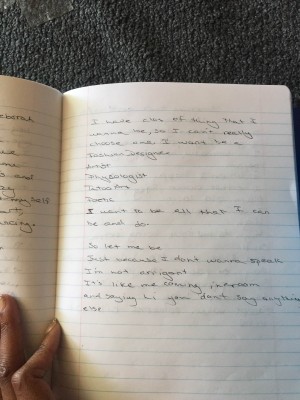 eborah
and
my self
I have lots of thing that I
wanna be, so I can't really
choose one. I want be a
Fashion Designer
Artist
Phycologist
Tatoo Art
Poetic
I want to be all that I can
be and do.
So let me be
Just because I dont wanna speak
I'm not arrigant
It's like me coming in room
and saying hi you don't say anything
else